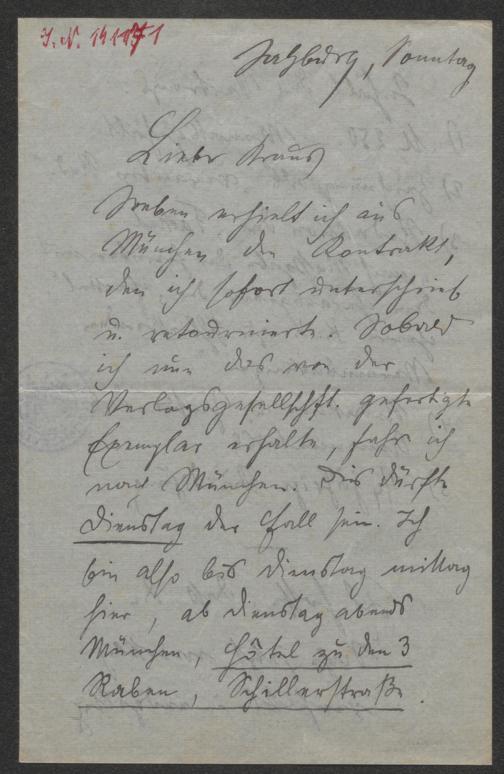 I. N. 141171
Salzburg, Sonntag
Lieber Kraus
Soeben erhielt ich aus
München den Kontrakt,
den ich sofort unterschrieb
u. retournierte. Sobald
ich nun das von der
Verlagsgesellschft gefertigte
Exemplar erhalte, fahr ich
nach München. Dis dürfte
Dienstag der Fall sein. Ich
bin also bis Dienstag mittag
hier, ab Dienstag abends
München, Hôtel zu den 3
Raben, Schillerstraße.